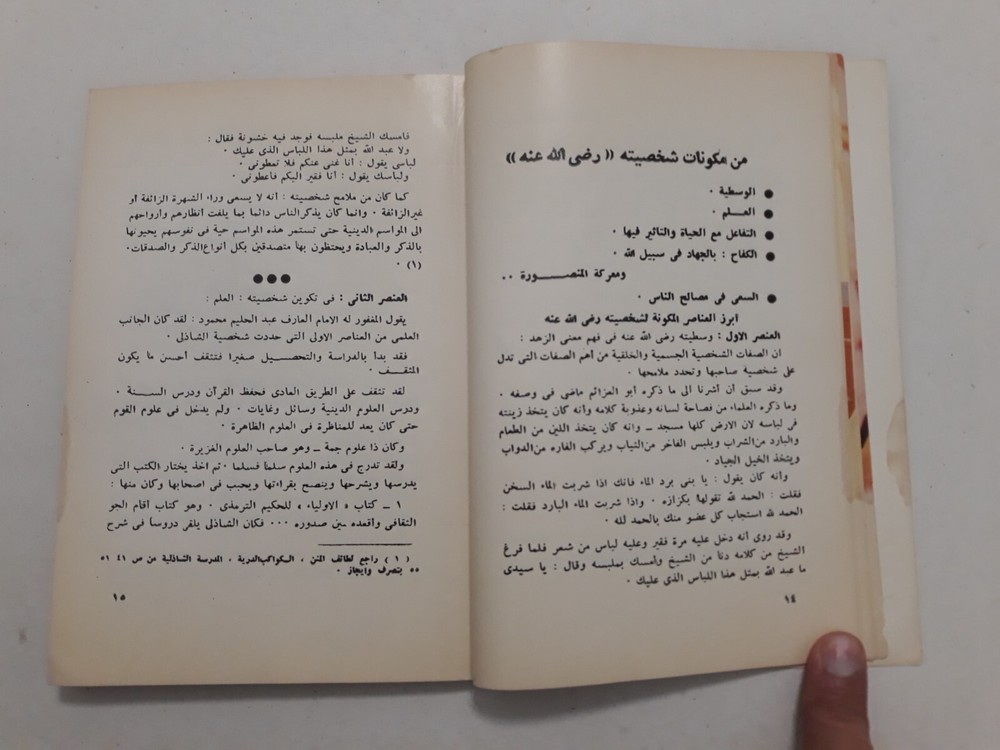 من مكونات شخصيته « رضى الله عنه »
● الوسطية ·
● العلم ·
● التفاعل مع الحياة والتأثير فيها ·
● الكفاح : بالجهاد فى سبيل الله ·
ومعركة المنصورة ··
● السعى فى مصالح الناس ·
ابرز العناصر المكونة لشخصيته رضى الله عنه
العنصر الاول : وسطيته رضى الله عنه فى فهم معنى الزهد :
ان الصفات الشخصية الجسمية والخلقية من أهم الصفات التى تدل
على شخصية صاحبها وتحدد ملامحها ·
وقد سبق أن أشرنا الى ما ذكره أبو العزائم ماضى فى وصفه ·
وما ذكره العلماء من فصاحة لسانه وعذوبة كلامه وأنه كان يتخذ زينته
فى لباسه لان الارض كلها مسجد ــ وانه كان يتخذ اللين من الطعام
والبارد من الشراب ويلبس الفاخر من الثياب ويركب الفاره من الدواب
ويتخذ الخيل الجياد ·
وأنه كان يقول : يا بنى برد الماء فانك اذا شربت الماء السخن
فقلت : الحمد لله تقولها بكزازه · واذا شربت الماء البارد فقلت :
الحمد لله استجاب كل عضو منك بالحمد لله ·
وقد روى أنه دخل عليه مرة فقير وعليه لباس من شعر فلما فرغ
الشيخ من كلامه دنا من الشيخ وأمسك بملبسه وقال : يا سيدى
ما عبد الله بمثل هذا اللباس الذى عليك ·
١٤
فامسك الشيخ ملبسه فوجد فيه خشونة فقال :
ولا عبد الله بمثل هذا اللباس الذى عليك ·
لباسى يقول : أنا غنى عنكم فلا تعطونى ·
ولباسك يقول : أنا فقير اليكم فأعطونى ·
كما كان من ملامح شخصيته : أنه لا يسعى وراء الشهرة الزائفة أو
غير الزائفة · وانما كان يذكر الناس دائما بما يلفت أنظارهم وأرواحهم
الى المواسم الدينية حتى تستمر هذه المواسم حية فى نفوسهم يحيونها
بالذكر والعبادة ويحتظون بها متصدقين بكل أنواع الذكر والصدقات·
(١) ·
●●●
العنصر الثانى : فى تكوين شخصيته : العلم :
يقول المغفور له الامام العارف عبد الحليم محمود : لقد كان الجانب
العلمى من العناصر الاولى التى حددت شخصية الشاذلى ·
فقد بدأ بالدراسة والتحصيل صغيرا فتثقف أحسن ما يكون
المثقف ·
لقد تثقف على الطريق العادى فحفظ القرآن ودرس السنة ·
ودرس العلوم الدينية وسائل وغايات · ولم يدخل فى علوم القوم
حتى كان يعد للمناظرة فى العلوم الظاهرة ·
وكان ذا علوم جمة ــ وهو صاحب العلوم الغزيرة ·
ولقد تدرج فى هذه العلوم سلما فسلما · ثم اخذ يختار الكتب التى
يدرسها ويشرحها وينصح بقراءتها ويحبب فى اصحابها وكان منها :
١ ــ كتاب « الاولياء » للحكيم الترمذى · وهو كتاب اقام الجو
الثقافى واقعده حين صدوره ··· فكان الشاذلى يلقى دروسا فى شرح
( ١ ) راجع لطائف المنن ، الكواكب الدرية ، المدرسة الشاذلية من ص ٤١ ٥١
٥٥ بتصرف وايجاز ·
١٥